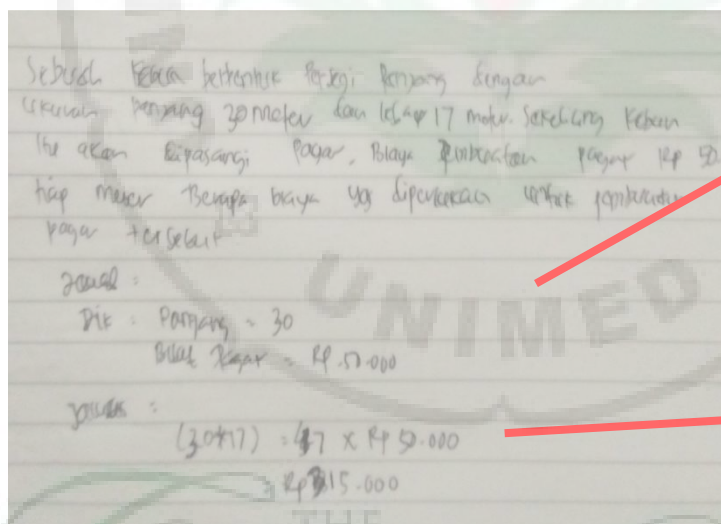 Sebuah kebun berbentuk Persegi Panjang dengan
Ukuran Panjang 30 meter dan lebar 17 meter. Sekeliling kebun
itu akan dipasangi Pagar. Biaya pembuatan pagar Rp 50
tiap meter Berapa biaya yg diperlukan untuk pembuatan
pagar tersebut
Jawab :
Dik : Panjang = 30
Pagar = Rp.50.000
Jawab :
(30+17) = 47 x Rp 50.000
Rp 315.000
UNIMED
THE